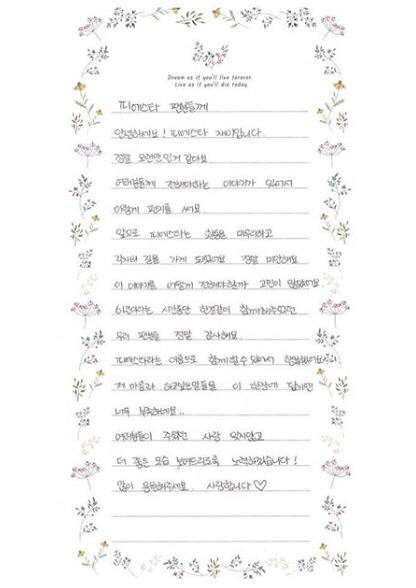 Dream as if you'll live forever.
Live as if you'll die today.
피에스타 팬분들께
안녕하세요! 피에스타 재이입니다.
정말 오랜만인거 같아요
여러분들께 전해야하는 이야기가 있어서
이렇게 편지를 써요.
앞으로 피에스타는 활동을 마무리하고
각자의 길을 가게 되었어요. 정말 미안해요
이 이야기를 어떻게 전해야할까 고민이 많았어요
6년이라는 시간동안 한결같이 함께해주었던
우리 팬분들 정말 감사해요.
피에스타라는 이름으로 함께할수 있어서 행복했어요
제 마음과 하고싶은말들을 이 한장에 담기엔
너무 부족하네요..
여러분들이 주셨던 사랑 잊지않고
더 좋은 모습 보여드리도록 노력하겠습니다!
많이 응원해주세요. 사랑합니다♡